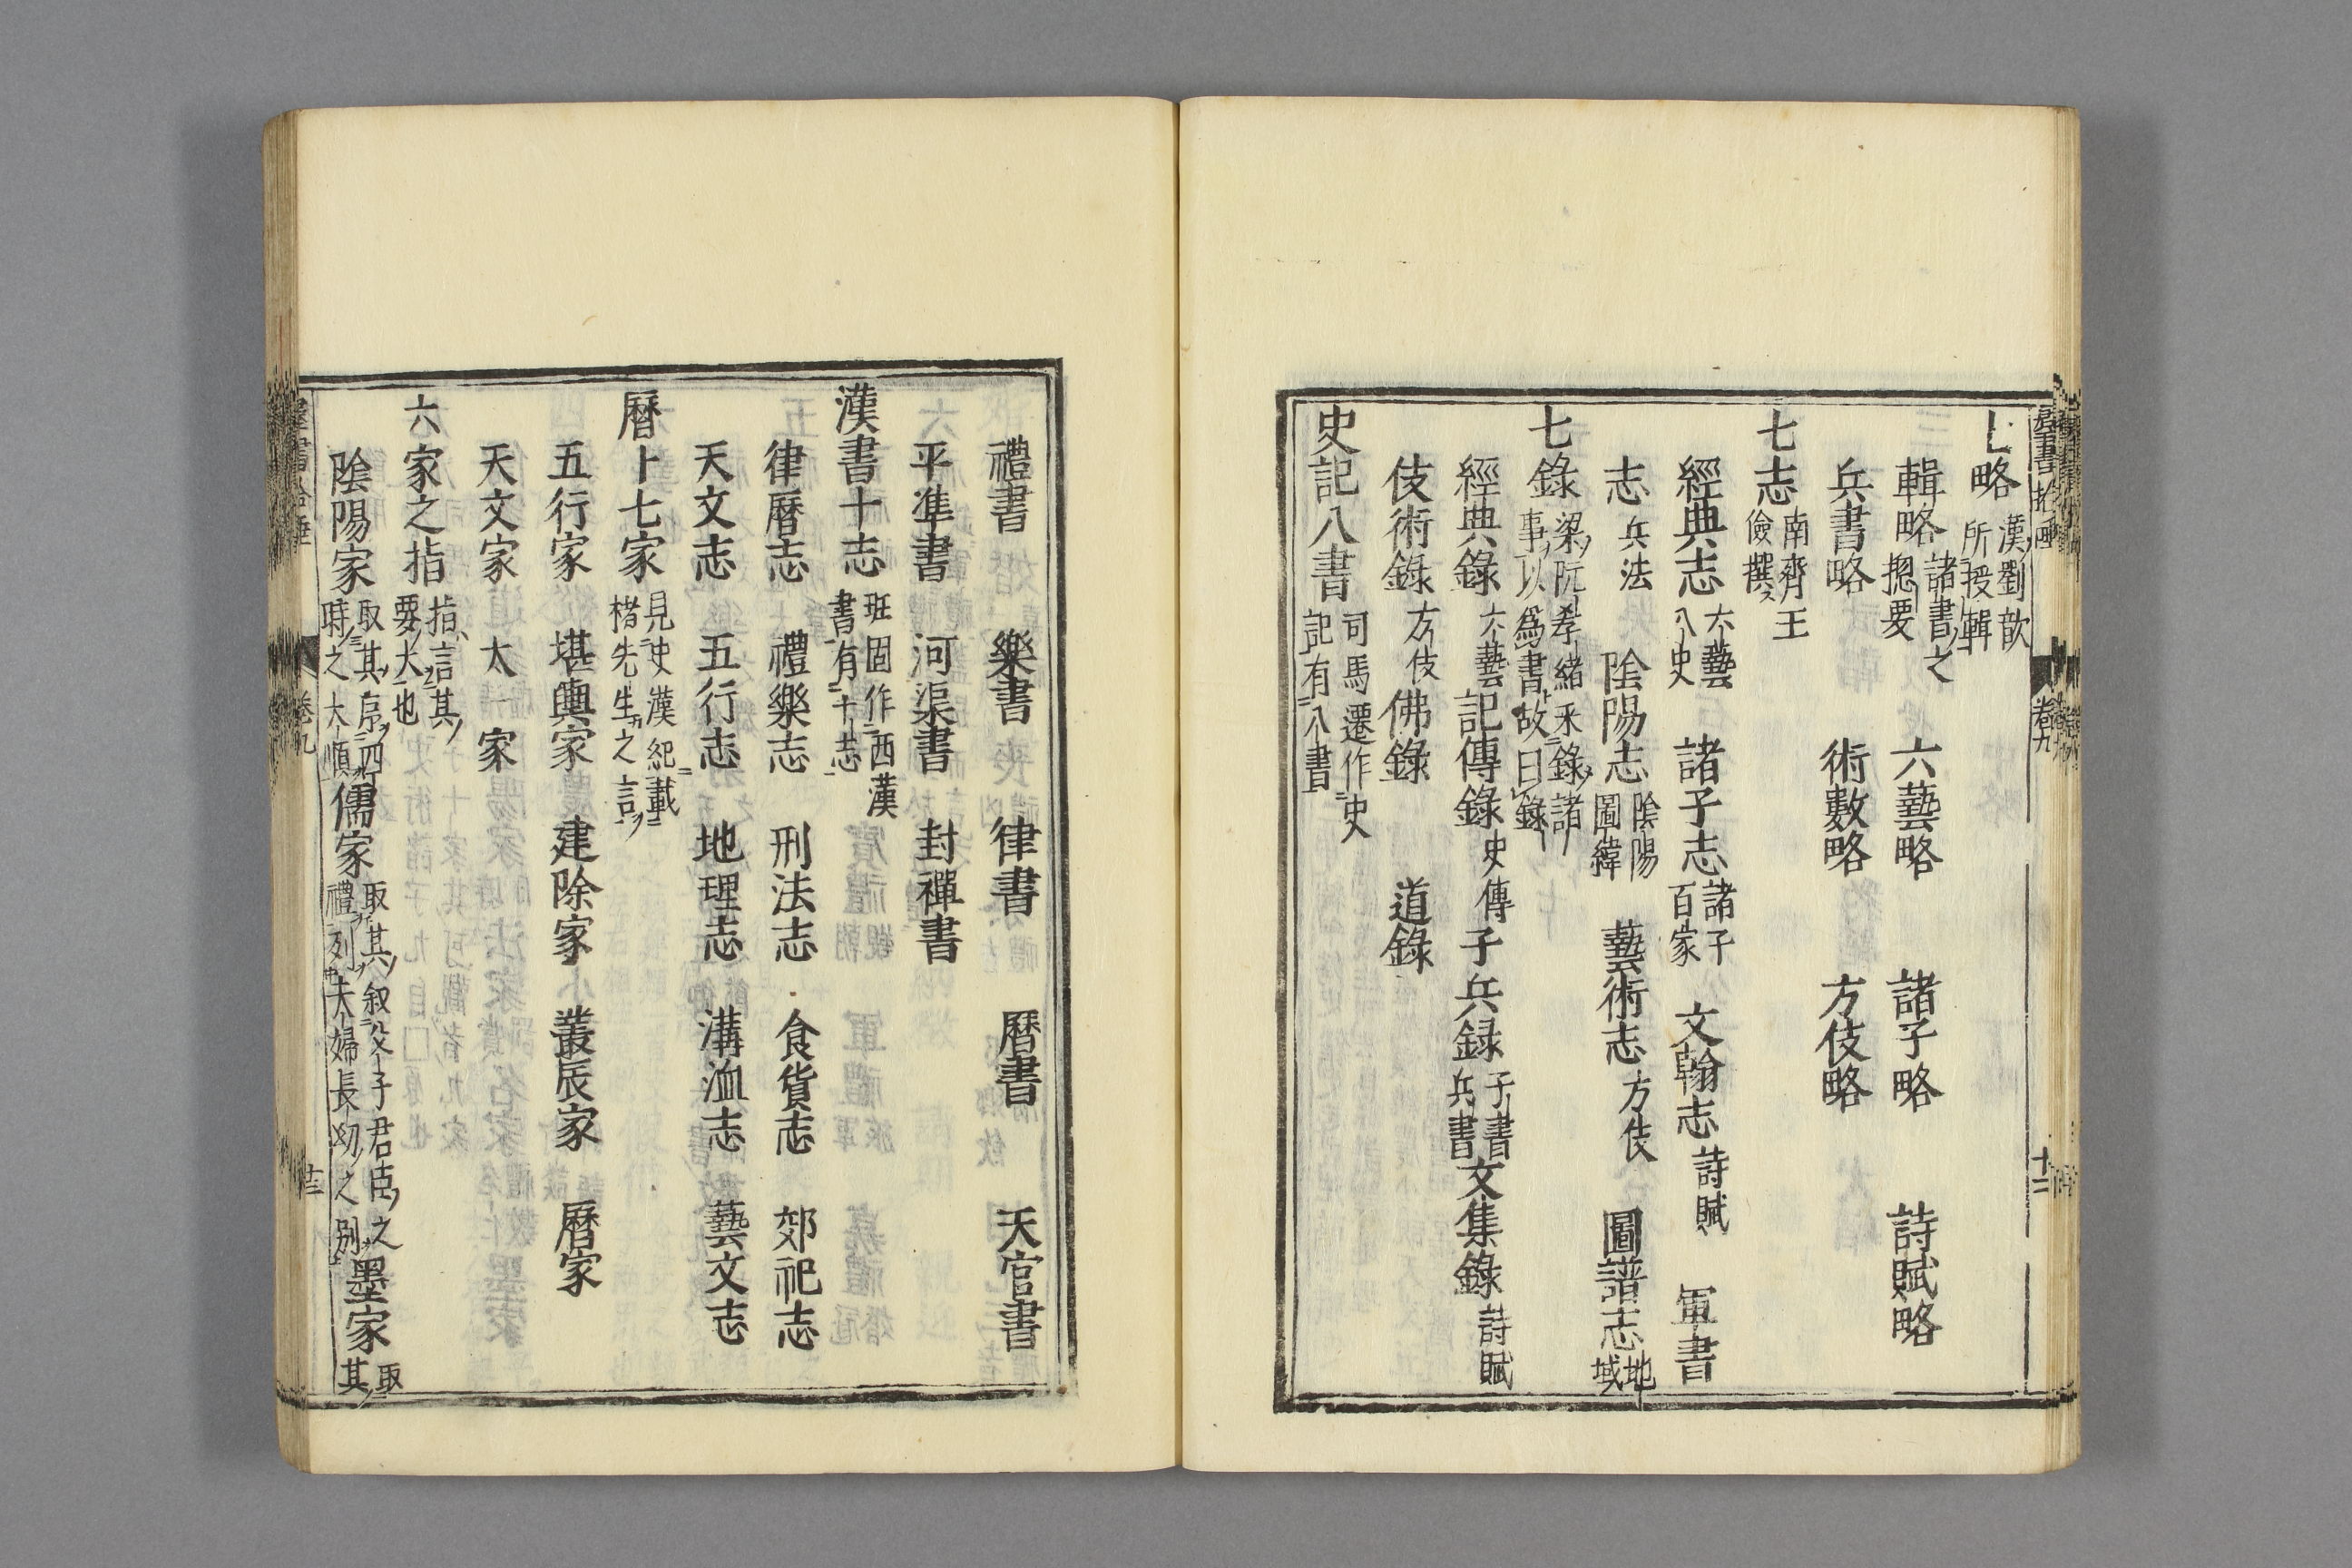 七略 漢劉歆所授輯
輯略 諸書之摠要 六藝略 諸子略 詩賦略
兵書略 術數略 方伎略
七志 南齊王儉撰
經典志 六藝八史 諸子志 諸子百家 文翰志 詩賦 軍書
志 兵法 陰陽志 陰陽圖緯 藝術志 方伎 圖譜志 地域
七錄 梁阮孝緒釆錄諸事以爲書故曰錄
經典錄 六藝 記傳錄 史傳 子兵録 子書兵書 文集錄 詩賦
伎術錄 方伎 佛錄 道錄
史記八書 司馬遷作史記有八書
卷九
十二
禮書 樂書 律書 曆書 天官書
平準書 河渠書 封禪書
漢書十志 班固作西漢書有十志
律曆志 禮樂志 刑法志 食貨志 郊祀志
天文志 五行志 地理志 溝洫志 藝文志
曆卜七家 見史漢紀載楮先生之言
五行家 堪輿家 建除家 叢辰家 曆家
天文家 太一家
六家之指 指言其要大也
陰陽家 取其序四時之大順 儒家 取其叙父子君臣之禮列夫婦長幼之別 墨家 取其
卷九
十三